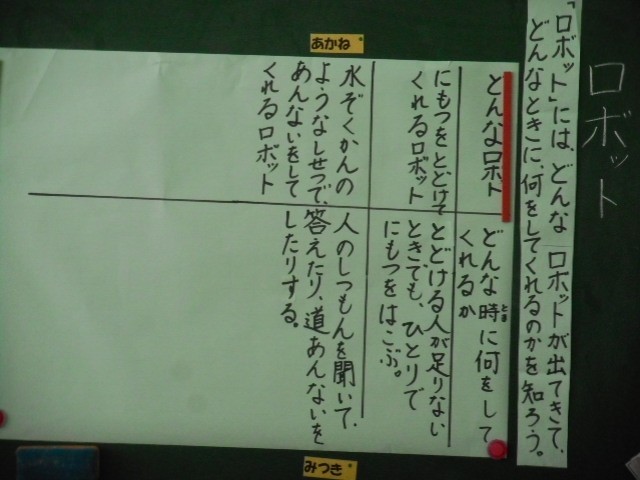 ロボット
「ロボット」には、どんなロボットが出てきて、
どんなときに、何をしてくれるのかを知ろう。
どんなロボット
どんな時に何をして
とき
くれるか
にもつをとどけて
くれるロボット
とどける人が足りない
ときでも、ひとりで
にもつをはこぶ。
水ぞくかんの
ようなしせつで、
あんないをして
くれるロボット
人のしつもんを聞いて、
答えたり、道あんないを
したりする。
あかね
みつき